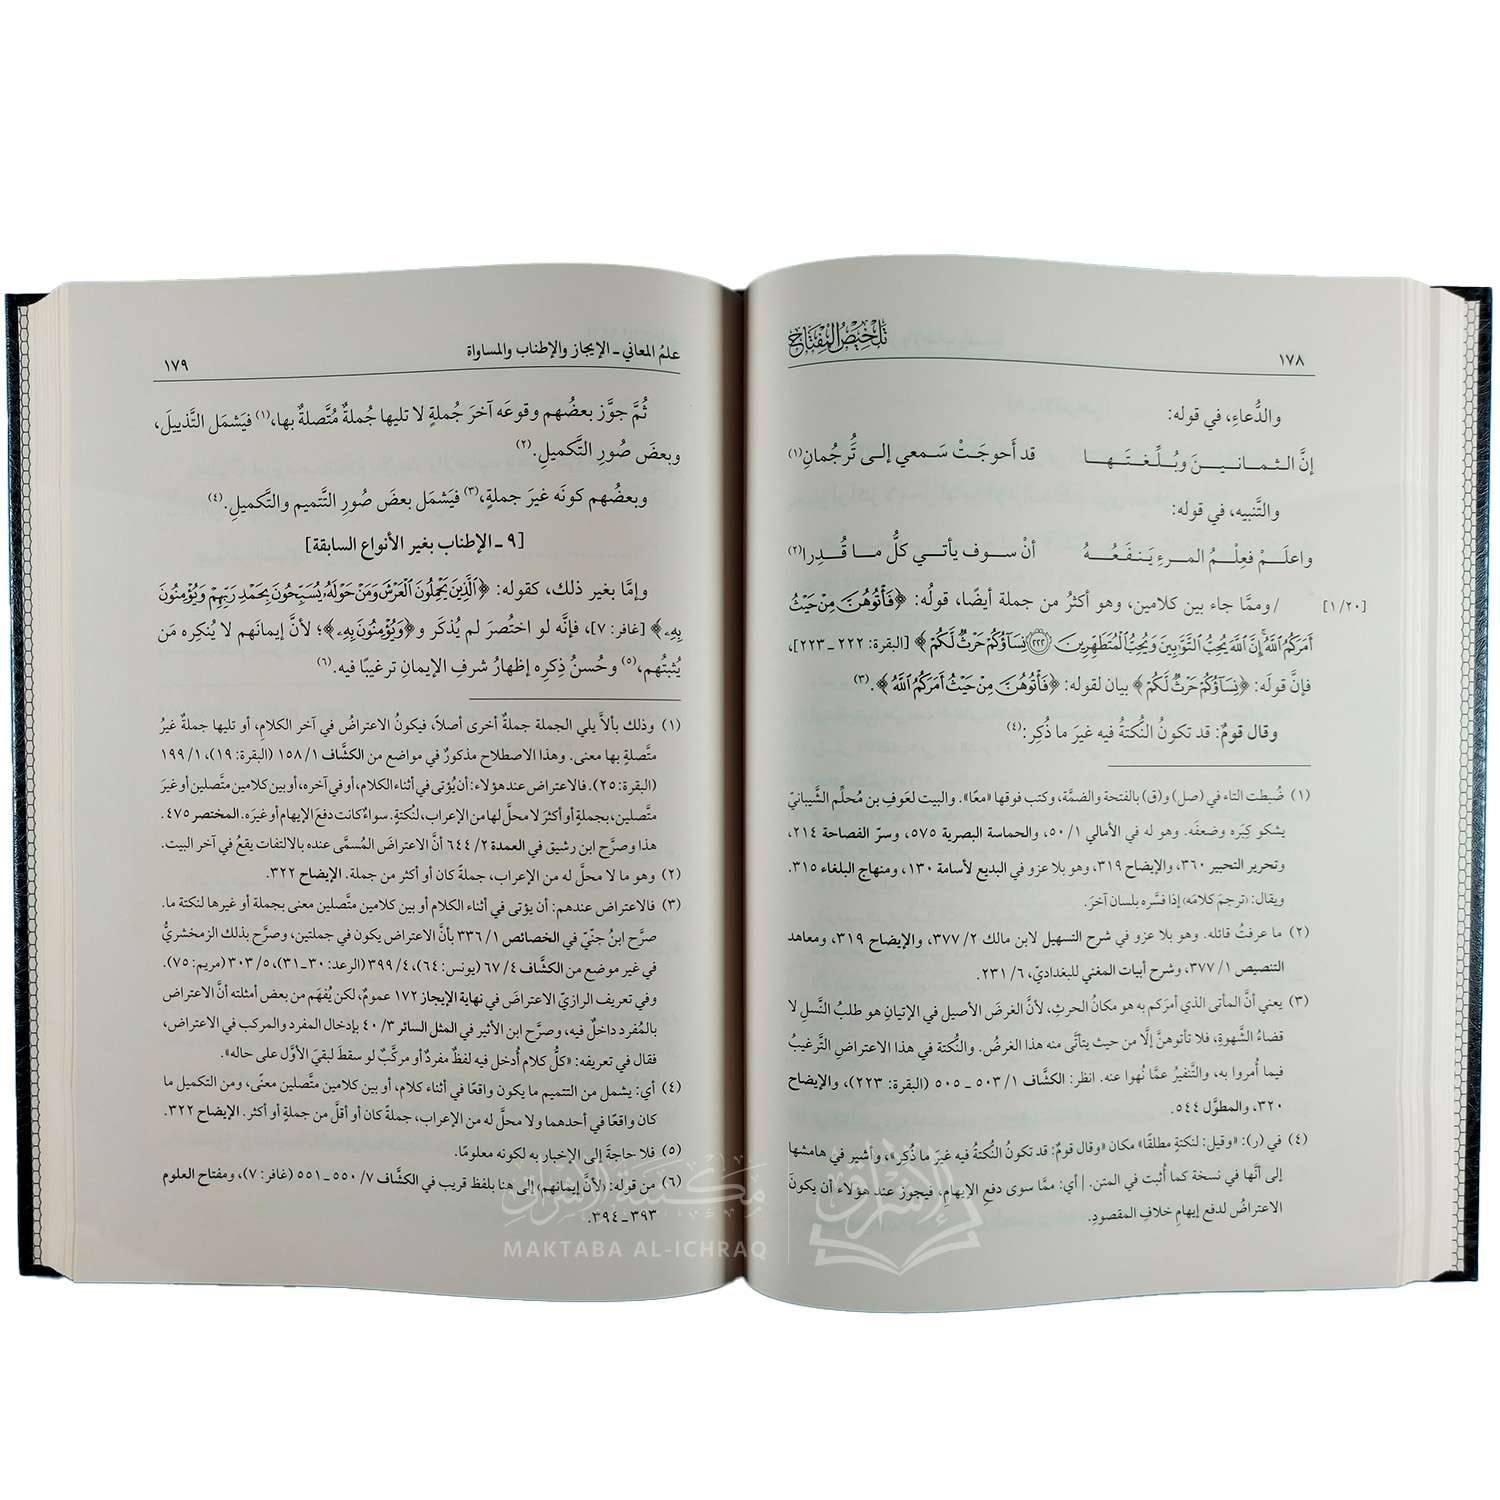 ١٧٨
تلخيص المفتاح
والدُّعاءِ، في قوله:
إنَّ الـثـمـانـيـنَ وبُـلِّـغـتَـهـا قد أَحوجَتْ سَمعي إلى تُرجُمانِ(١)
والتَّنبيه، في قوله:
واعلَـمْ فعِلْـمُ المـرءِ يَـنـفَـعُـهُ أنْ سـوف يـأتـي كلُّ مـا قُـدِرا(٢)
[٢٠/ ١] / وممَّا جاء بين كلامين، وهو أكثرُ من جملة أيضًا، قولُه: ﴿فَأْتُوهُنَّ مِنْ حَيْثُ
أَمَرَكُمُ اللَّهُ إِنَّ اللَّهَ يُحِبُّ التَّوَّابِينَ وَيُحِبُّ الْمُتَطَهِّرِينَ ۝٢٢٢ نِسَاؤُكُمْ حَرْثٌ لَكُمْ﴾ [البقرة: ٢٢٢ ـ ٢٢٣]،
فإنَّ قولَه: ﴿نِسَاؤُكُمْ حَرْثٌ لَكُمْ﴾ بيان لقوله: ﴿فَأْتُوهُنَّ مِنْ حَيْثُ أَمَرَكُمُ اللَّهُ﴾.(٣)
وقال قومٌ: قد تكونُ النُّكتةُ فيه غيرَ ما ذُكِر:(٤)
(١) ضُبطت التاء في (صل) و(ق) بالفتحة والضمَّة، وكتب فوقها «معًا». والبيت لعَوفِ بن مُحلِّم الشَّيبانيّ
يشكو كِبَره وضعفَه. وهو له في الأمالي ١/ ٥٠، والحماسة البصرية ٥٧٥، وسرّ الفصاحة ٢١٤،
وتحرير التحبير ٣٦٠، والإيضاح ٣١٩، وهو بلا عزو في البديع لأسامة ١٣٠، ومنهاج البلغاء ٣١٥.
ويقال: (ترجمَ كلامَه) إذا فسَّره بلسان آخرَ.
(٢) ما عرفتُ قائله. وهو بلا عزو في شرح التسهيل لابن مالك ٢/ ٣٧٧، والإيضاح ٣١٩، ومعاهد
التنصيص ١/ ٣٧٧، وشرح أبيات المغني للبغداديّ، ٦/ ٢٣١.
(٣) يعني أنَّ المأتى الذي أمرَكم به هو مكانُ الحرثِ، لأنَّ الغرضَ الأصيل في الإتيانِ هو طلبُ النَّسلِ لا
قضاءُ الشَّهوةِ، فلا تأتوهنَّ إلَّا من حيث يتأتَّى منه هذا الغرضُ. والنُّكتة في هذا الاعتراضِ التَّرغيبُ
فيما أُمروا به، والتَّنفيرُ عمَّا نُهوا عنه. انظر: الكشاف ١/ ٥٠٣ ـ ٥٠٥ (البقرة: ٢٢٣)، والإيضاح
٣٢٠، والمطوَّل ٥٤٤.
(٤) في (ر): «وقيل: لنكتةٍ مطلقًا» مكان «وقال قومٌ: قد تكونُ النُّكتةُ فيه غيرَ ما ذُكِر»، وأشير في هامشها
إلى أنَّها في نسخة كما أُثبت في المتن. | أي: ممَّا سوى دفعِ الإيهامِ، فيجوز عند هؤلاء أن يكونَ
الاعتراضُ لدفع إيهامِ خلافِ المقصودِ.
علمُ المعاني ـ الإيجاز والإطناب والمساواة
١٧٩
ثُمَّ جوَّز بعضُهم وقوعَه آخرَ جُملةٍ لا تليها جُملةٌ مُتَّصلةٌ بها،(١) فيَشمَل التَّذييلَ،
وبعضَ صُورِ التَّكميلِ.(٢)
وبعضُهم كونَه غيرَ جملةٍ،(٣) فيَشمَل بعضَ صُورِ التَّتميم والتَّكميلِ.(٤)
[٩ ـ الإطناب بغير الأنواع السابقة]
وإمَّا بغير ذلك، كقوله: ﴿الَّذِينَ يَحْمِلُونَ الْعَرْشَ وَمَنْ حَوْلَهُ يُسَبِّحُونَ بِحَمْدِ رَبِّهِمْ وَيُؤْمِنُونَ
بِهِ﴾ [غافر: ٧]، فإنَّه لو اختُصر لم يُذكر و﴿وَيُؤْمِنُونَ بِهِ﴾؛ لأنَّ إيمانَهم لا يُنكِره مَن
يُثبتُهم،(٥) وحُسنُ ذِكرِه إظهارُ شرفِ الإيمانِ ترغيبًا فيه.(٦)
(١) وذلك بألاَّ يلي الجملة جملةٌ أخرى أصلًا، فيكونُ الاعتراضُ في آخر الكلامِ، أو تليها جملةٌ غيرُ
متَّصلةٍ بها معنى. وهذا الاصطلاح مذكورٌ في مواضع من الكشَّاف ١/ ١٥٨ (البقرة: ١٩)، ١/ ١٩٩
(البقرة: ٢٥). فالاعتراض عند هؤلاء: أن يُؤتى في أثناء الكلام، أو في آخره، أو بين كلامين متَّصلين أو غيرَ
متَّصلين، بجملةٍ أو أكثرَ لا محلَّ لها من الإعراب، لنُكتةٍ. سواءٌ كانت دفعَ الإيهام أو غيرَه. المختصر ٤٧٥.
هذا وصرَّح ابن رشيق في العمدة ٢/ ٦٤٤ أنَّ الاعتراضَ المُسمَّى عنده بالالتفات يقعُ في آخر البيت.
(٢) وهو ما لا محلَّ له من الإعراب، جملةً كان أو أكثر من جملة. الإيضاح ٣٢٢.
(٣) فالاعتراض عندهم: أن يؤتى في أثناء الكلام أو بين كلامين متَّصلين معنى بجملةٍ أو غيرها لنكتة ما.
صرَّح ابنُ جنّيّ في الخصائص ١/ ٣٣٦ بأنَّ الاعتراض يكون في جملتين، وصرَّح بذلك الزمخشريُّ
في غير موضع من الكشَّاف ٤/ ٦٧ (يونس: ٦٤)، ٤/ ٣٩٩ (الرعد: ٣٠ ـ ٣١)، ٥/ ٣٠٣ (مريم: ٧٥).
وفي تعريف الرازيّ الاعتراضَ في نهاية الإيجاز ١٧٢ عمومٌ، لكن يُفهَم من بعض أمثلته أنَّ الاعتراض
بالمُفرد داخلٌ فيه، وصرَّح ابن الأثير في المثل السائر ٣/ ٤٠ بإدخال المفرد والمركب في الاعتراض،
فقال في تعريفه: «كلُّ كلام أُدخل فيه لفظٌ مفردٌ أو مركَّبٌ لو سقطَ لبقيَ الأوَّل على حاله».
(٤) أي: يشمل من التتميم ما يكون واقعًا في أثناء كلام، أو بين كلامين متَّصلين معنًى، ومن التكميل ما
كان واقعًا في أحدهما ولا محلَّ له من الإعراب، جملةً كان أو أقلَّ من جملةٍ أو أكثر. الإيضاح ٣٢٢.
(٥) فلا حاجةَ إلى الإخبار به لكونه معلومًا.
(٦) من قوله: (لأنَّ إيمانهم) إلى هنا بلفظ قريب في الكشَّاف ٧/ ٥٥٠ ـ ٥٥١ (غافر: ٧)، ومفتاح العلوم
٣٩٣ ـ ٣٩٤.
مكتبة الإشراق
MAKTABA AL-ICHRAQ
الإشراق